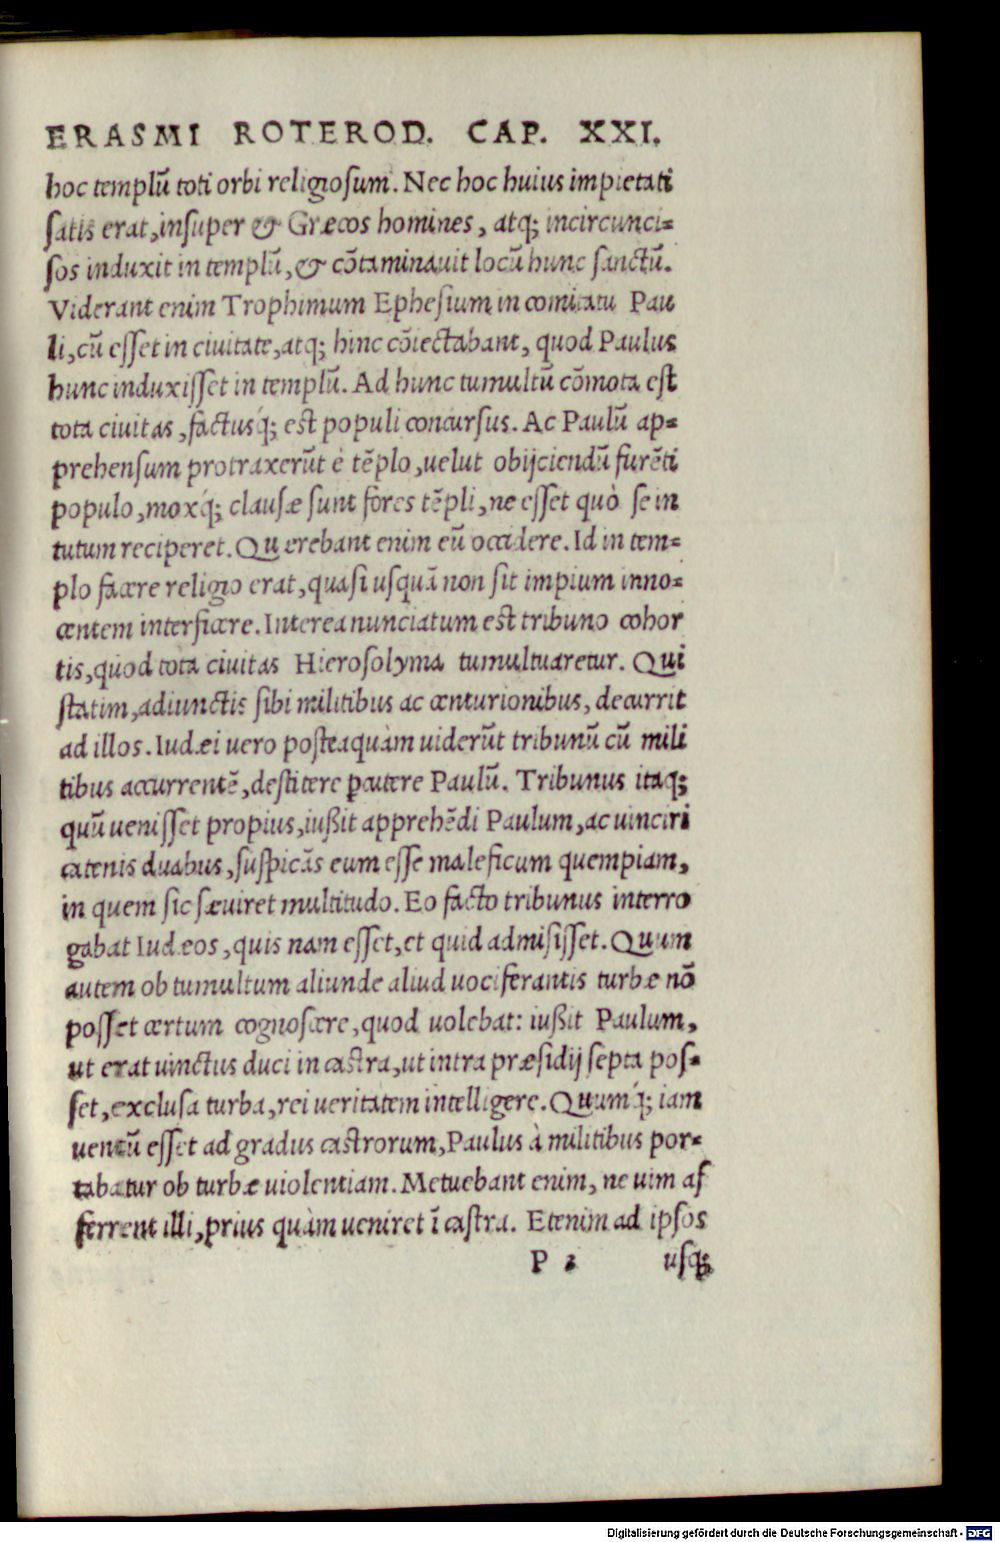 ERASMI ROTEROD. CAP. XXI.
hoc templū toti orbi religiosum. Nec hoc huius impietati
satis erat, insuper & Græcos homines, atq; incircunci-
sos induxit in templū, & cōtaminauit locū hunc sanctū.
Viderant enim Trophimum Ephesium in comitatu Pau
li, cū esset in ciuitate, atq; hinc cōiectabant, quod Paulus
hunc induxisset in templū. Ad hunc tumultū cōmota est
tota ciuitas, factusq́; est populi concursus. Ac Paulū ap-
prehensum protraxerūt è tēplo, uelut obijciendū furēti
populo, moxq́; clausæ sunt fores tēpli, ne esset quò se in
tutum reciperet. Quęrebant enim eū occidere. Id in tem-
plo facere religio erat, quasi usquā non sit impium inno-
centem interficere. Interea nunciatum est tribuno cohor
tis, quòd tota ciuitas Hierosolyma tumultuaretur. Qui
statim, adiunctis sibi militibus ac centurionibus, decurrit
ad illos. Iudæi uero posteaquàm uiderūt tribunū cū mili
tibus accurrentē, destitere ꝑcutere Paulū. Tribunus itaq;
quū uenisset propius, iußit apprehēdi Paulum, ac uinciri
catenis duabus, suspicās eum esse maleficum quempiam,
in quem sic sæuiret multitudo. Eo facto tribunus interro
gabat Iudæos, quis nam esset, et quid admisisset. Quum
autem ob tumultum aliunde aliud uociferantis turbæ nō
posset certum cognoscere, quod uolebat: iußit Paulum,
ut erat uinctus duci in castra, ut intra præsidij septa pos-
set, exclusa turba, rei ueritatem intelligere. Quumq́; iam
uentū esset ad gradus castrorum, Paulus à militibus por-
tabatur ob turbæ uiolentiam. Metuebant enim, ne uim af
ferrent illi, prius quàm ueniret ī castra. Etenim ad ipsos
P 2 usq;
Digitalisierung gefördert durch die Deutsche Forschungsgemeinschaft - DFG